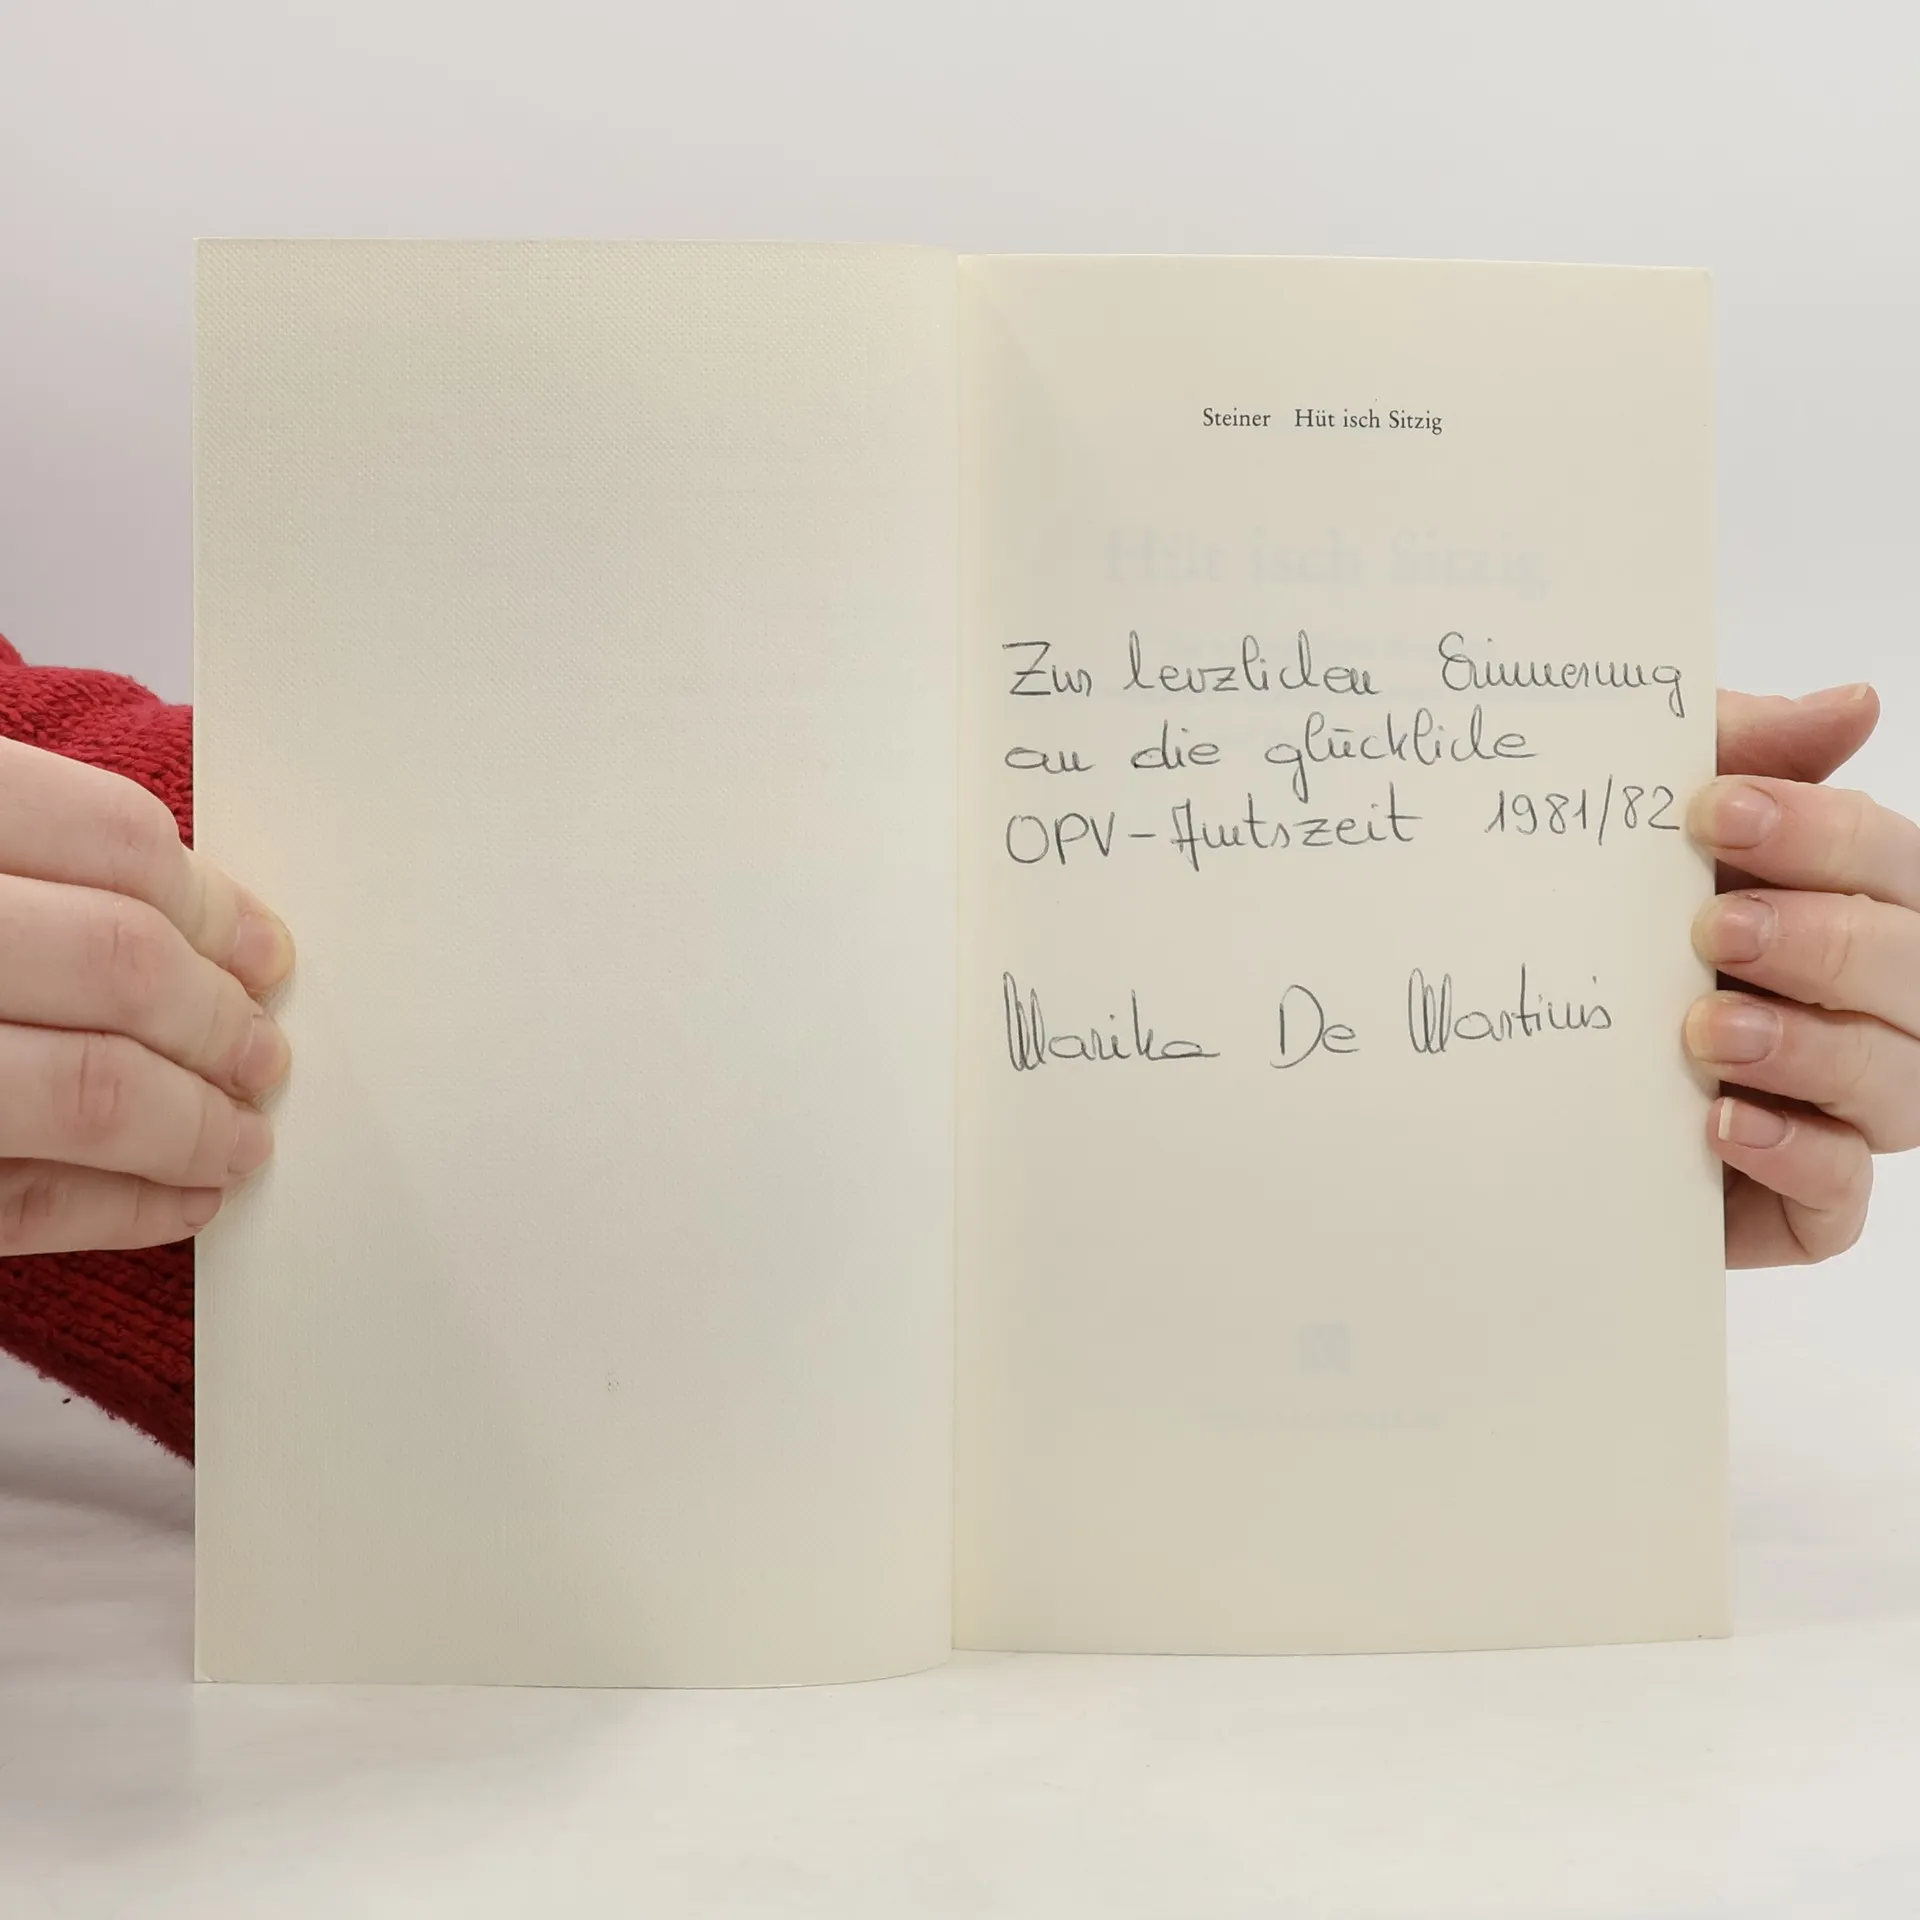 Steiner Hüt isch Sitzig
Hüt isch Sitzig
Zur herzlichen Erinnerung
an die glückliche
OPV-Amtszeit 1981/82
Marika De Martinis